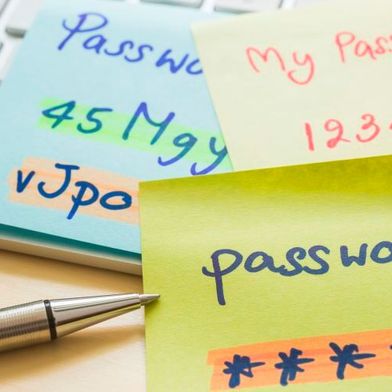 Passwo
45Mgy
vJpo
My Pas
1234
passwo
****